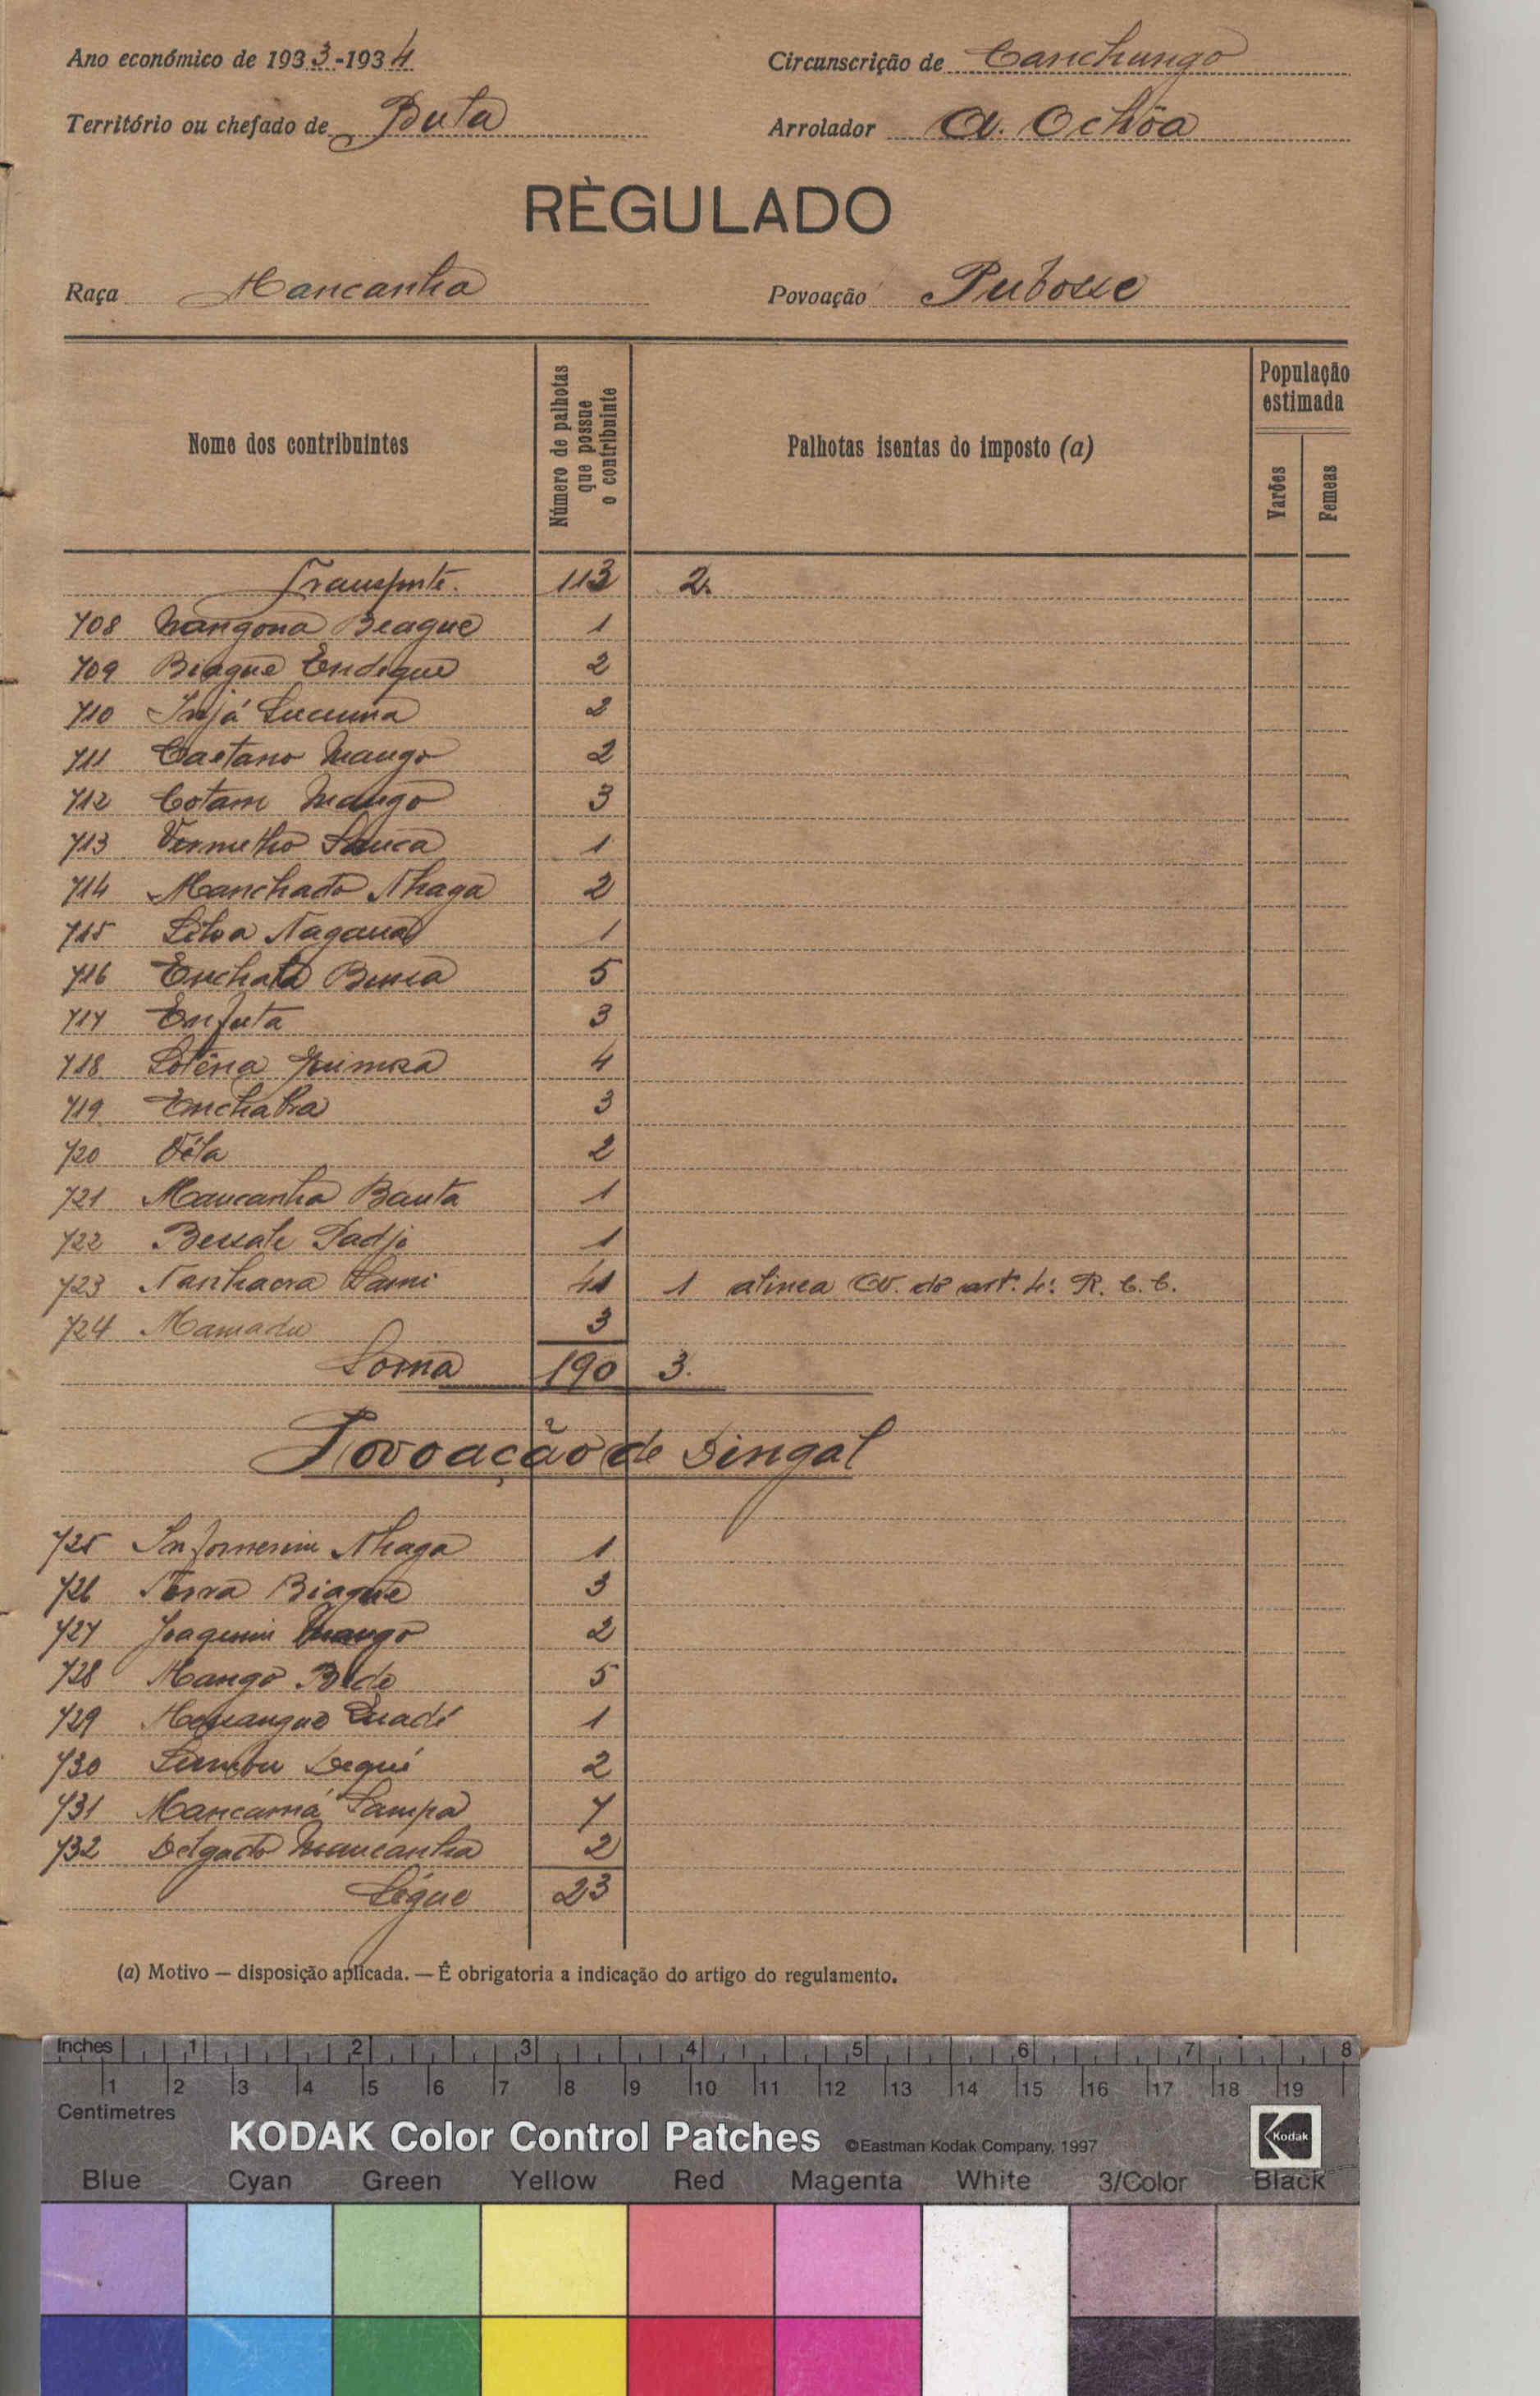 Ano económico de 1933-1934
Circunscrição de Canchungo
Território ou chefado de Buta
Arrolador A. Ochôa
RÈGULADO
Raça Mancanha
Povoação Pubosse
Nome dos contribuintes
Número de palhotas que possue o contribuinte
Palhotas isentas do imposto (a)
População estimada
Varões
Femeas
Transporte. 113 2.
708 Nangona Beague 1
709 Biague Endeque 2
710 Injá Lucuma 2
711 Caetano Mango 2
712 Cotam Mango 3
713 Vermelho Sanca 1
714 Manchado Nhaga 2
715 Silva Nagana 1
716 Enchalá 5
717 Enfuta 3
718 4
719 Enchaba 3
720 Véla 2
721 Mancanha Banta 1
722 Bessale Dadji 1
723 41 1 alinea do art.º 4.º R. C. C.
724 Mamadu 3
Soma 190 3.
Povoação de Dingal
725 Nhaga 1
726 Terra Biague 3
727 Joaquim Mango 2
728 Mango Bide 5
729 1
730 Dequi 2
731 Mancamá Sampa 7
732 Delgado Mancanha 2
Ségue 23
(a) Motivo — disposição aplicada. — É obrigatoria a indicação do artigo do regulamento.
Inches 1 2 3 4 5 6 7 8
1 2 3 4 5 6 7 8 9 10 11 12 13 14 15 16 17 18 19
Centimetres
KODAK Color Control Patches ©Eastman Kodak Company, 1997 Kodak
Blue Cyan Green Yellow Red Magenta White 3/Color Black